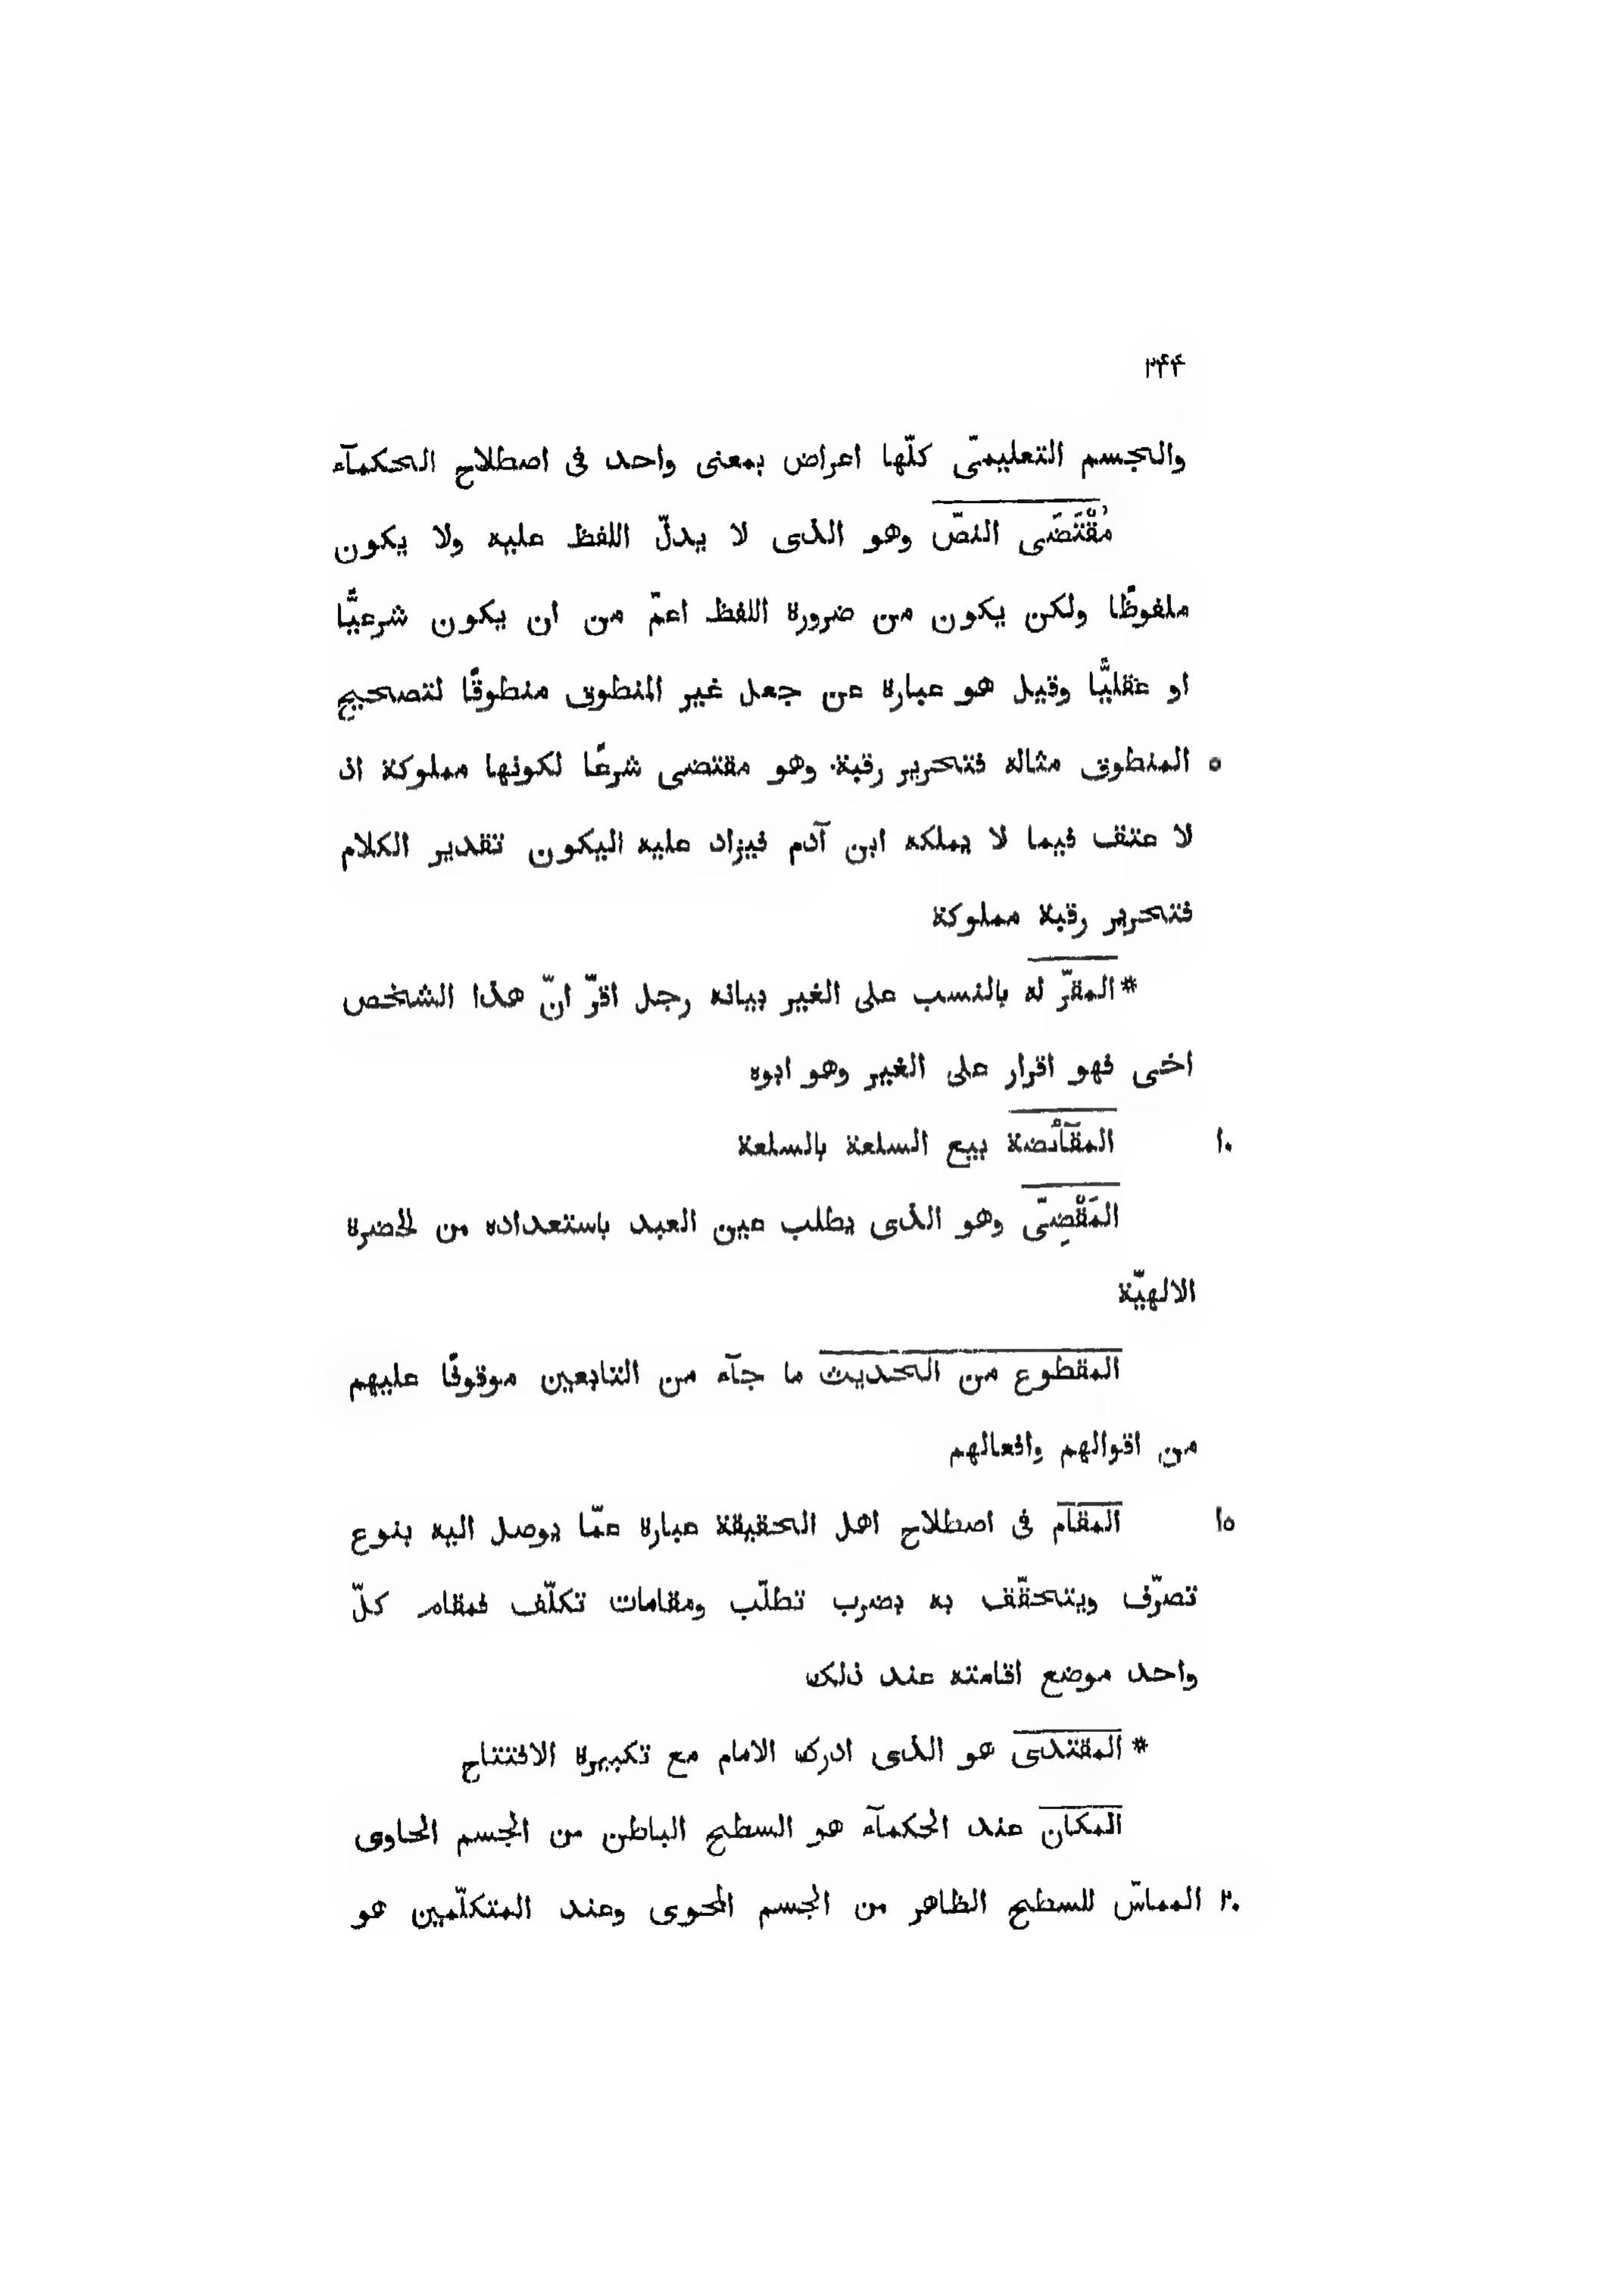 ٢۴۴
والجسم التعليمىّ كلّها اعراض بمعنى واحد فى اصطلاح الحكمآء
مُقْتَضَى النصّ وهو الذى لا يدلّ اللفظ عليه ولا يكون
ملفوظًا ولكن يكون من ضرورة اللفظ اعمّ من ان يكون شرعيًّا
او عقليًّا وقيل هو عبارة عن جعل غير المنطوق منطوقًا لتصحيح
٥ المنطوق مثاله فتحرير رقبة وهو مقتضى شرعًا لكونها مملوكة اذ
لا عتق فيما لا يملكه ابن آدم فيزاد عليه اليكون تقدير الكلام
فتحرير رقبة مملوكة
*المقرّ له بالنسب على الغير بيانه رجل اقرّ انّ هذا الشخص
اخى فهو اقرار على الغير وهو ابوه
١٠ المقآئضة بيع السلعة بالسلعة
المَقْضِىّ وهو الذى يطلب عين العبد باستعداده من الحضرة
الالهيّة
المقطوع من الحديث ما جآء من التابعين موقوفًا عليهم
من اقوالهم وافعالهم
١٥ المقام فى اصطلاح اهل الحقيقة عبارة عمّا يوصل اليه بنوع
تصرّف ويتحقّق به بضرب تطلّب ومقامات تكلّف فمقام كلّ
واحد موضع اقامته عند ذلك
* المقتدى هو الذى ادرك الامام مع تكبيرة الافتتاح
المكان عند الحكمآء هو السطح الباطن من الجسم الحاوى
٢٠ المماسّ للسطح الظاهر من الجسم المحوى وعند المتكلّمين هو